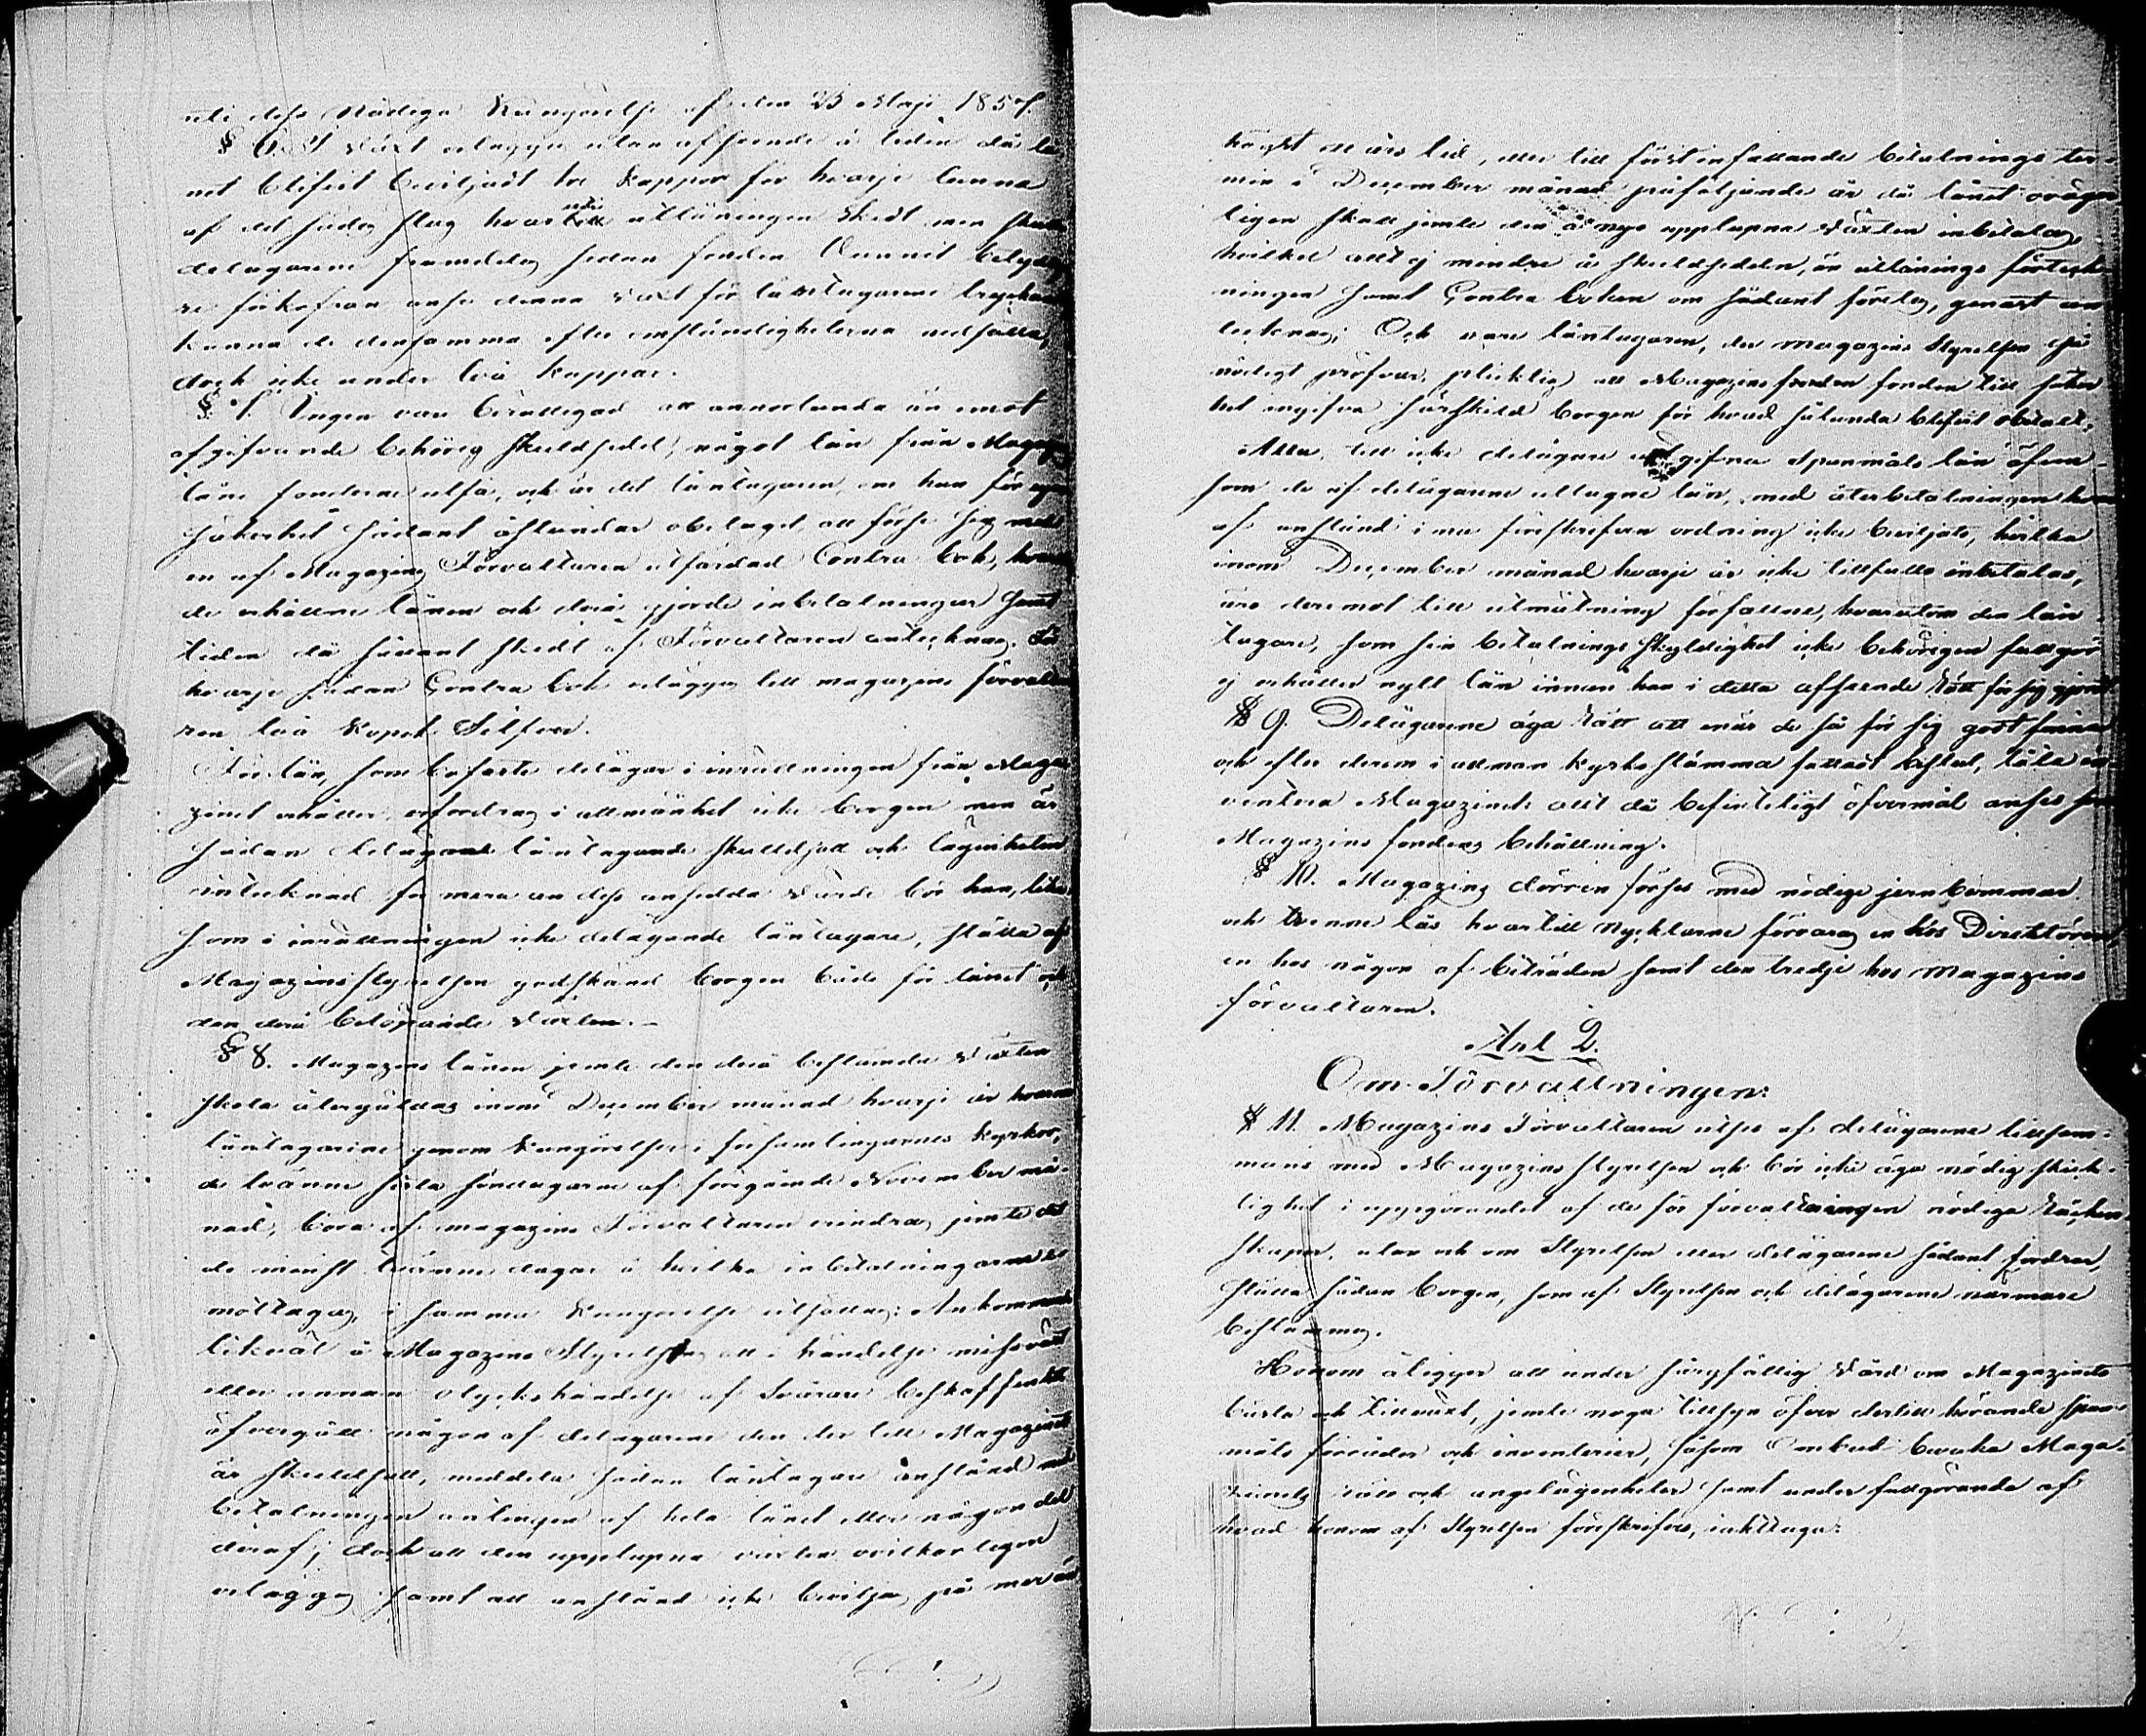 uti dess Nådiga Kungörelse af den 23 Maji 185
§ 6. I växt erlägges utan afseende å tiden då lå
net blifvit beviljadt tre kappor för hvarje tunna
af det sädes slag hvar utlåningen skedt men skulle
delägarene framdeles sedan fonden vunnit betyd
re förkofran anse denna växt för låntagarene tryckan
kunna de densamma efter omständigheterna nedsätta,
dock icke under två kappar.
§ 7. Ingen vare berättigad att annorlunda än emot
afgifvande behörig skuldsedel, något lån från Magazins
låne fonderne utfå, och är det låntagaren, om han för egen
säkerhet sådant åstundar obetaget, att förse sig med
en af Magazins Förvaltaren utfärdad Contra bok, hvaruti
de erhållne lånen och derå gjorde inbetalningar samt
tiden då sådant skedt af Förvaltaren antecknas. För
hvarje sådan Contra bok erlägges till magazins förvalta
ren två kopek Silfver.
För lån, som besutte delägar i inrättningen från Maga
zinet erhåller, erfordras i allmänhet icke borgen men är
sådan delägande låntagande skuldsatt och lägenheten
intecknad för mera än dess ansedda värde bör han, lika
som i inrättningen icke delägande låntagare, ställa af
Magazins styrelsen godkänd borgen både för lånet och
den derå belöpande växten.
§ 8. Magazins lånen jemte den derå bestämda växten
skola återgäldas inom December månad hvarje år hvarom
låntagarene genom Kungörelse i församlingarnes kyrkor,
de tvänne sista söndagarne af föregående November må
nad, böra af magazins Förvaltaren erindras jemte det
de minst tvänne dagar å hvilka inbetalningarne
mottagas, i samma Kungörelse utsättas: Ankommande
likväl å Magazins Styrelsen att i händelse missväxt
eller annan olyckshändelse af svårare beskaffenhet
öfvergått någon af delägarene den der till Magazinet
är skuldsatt, meddela sådan låntagare anstånd med
betalningen antingen af hela lånet eller någon del
deraf; dock att den upplupna växten ovilkorligen
erlägges samt att anstånd icke beviljas på mer än
högst ett års tid, eller till först infallande betalnings ter
min i December månad påföljande år då lånet ovägr
ligen skall jemte den å nyo upplupna växten inbetalas,
hvilket allt ej mindre å skuldsedeln, än utlånings förteck
ningen samt Contra boken om sådant företes, genast an
tecknas; Och vare låntagaren, der magazins Styrelsen så
nödigt pröfvar, plicktig att Magazins fonden till säker
het ingifva särskild borgen för hvad sålunda blifvit obetalt.
Alla, till icke delägare utgifna Spanmåls lån äfven
som de af delägarene uttagne lån, med återbetalningen hvar
af anstånd i nu föreskrefven ordning icke beviljats, hvilka
inom December månad hvarje år icke tillfullo inbetalas,
äro deremot till utmätning förfallne, hvarutom den lån
tagare, som sin betalnings skyldighet icke behörigen fullgör
ej erhåller nytt lån innan han i detta afseende rätt för sig gjort
§ 9. Delägarene äga rätt att när de så för sig godt finna
och efter derom i allmän kyrkostämma fattadt beslut, låta in
ventera Magazinet allt då befinteligt öfvermål anses som
Magazins fondens behållning.
§ 10. Magazins dörren förses med nödiga jern bommar
och trenne lås hvartill nycklarne förvaras en hos Direktören,
en hos någon af biträden samt den tredje hos Magazins
förvaltaren.
Art 2.
Om Förvaltningen:
§ 11. Magazins Förvaltaren utses af delägarene tillsam
mans med Magazins styrelsen och bör icke äga nödig skick
lighet i uppgörandet af de för förvaltningen nödiga räken
skaper, utan och om Styrelsen eller delägarene sådant fordrar,
ställa sådan borgen, som af Styrelsen och delägarene närmare
bestämmes.
Honom åligger att under sorgfällig vård om Magazinets
bästa och tillväxt, jemte noga tillsyn öfver dertill hörande span
måls förråder och inventarier, såsom Ombud bevaka Maga
zinets rätt och angelägenheter samt under fullgörande af
hvad honom af Styrelsen föreskrifves, iakttaga: